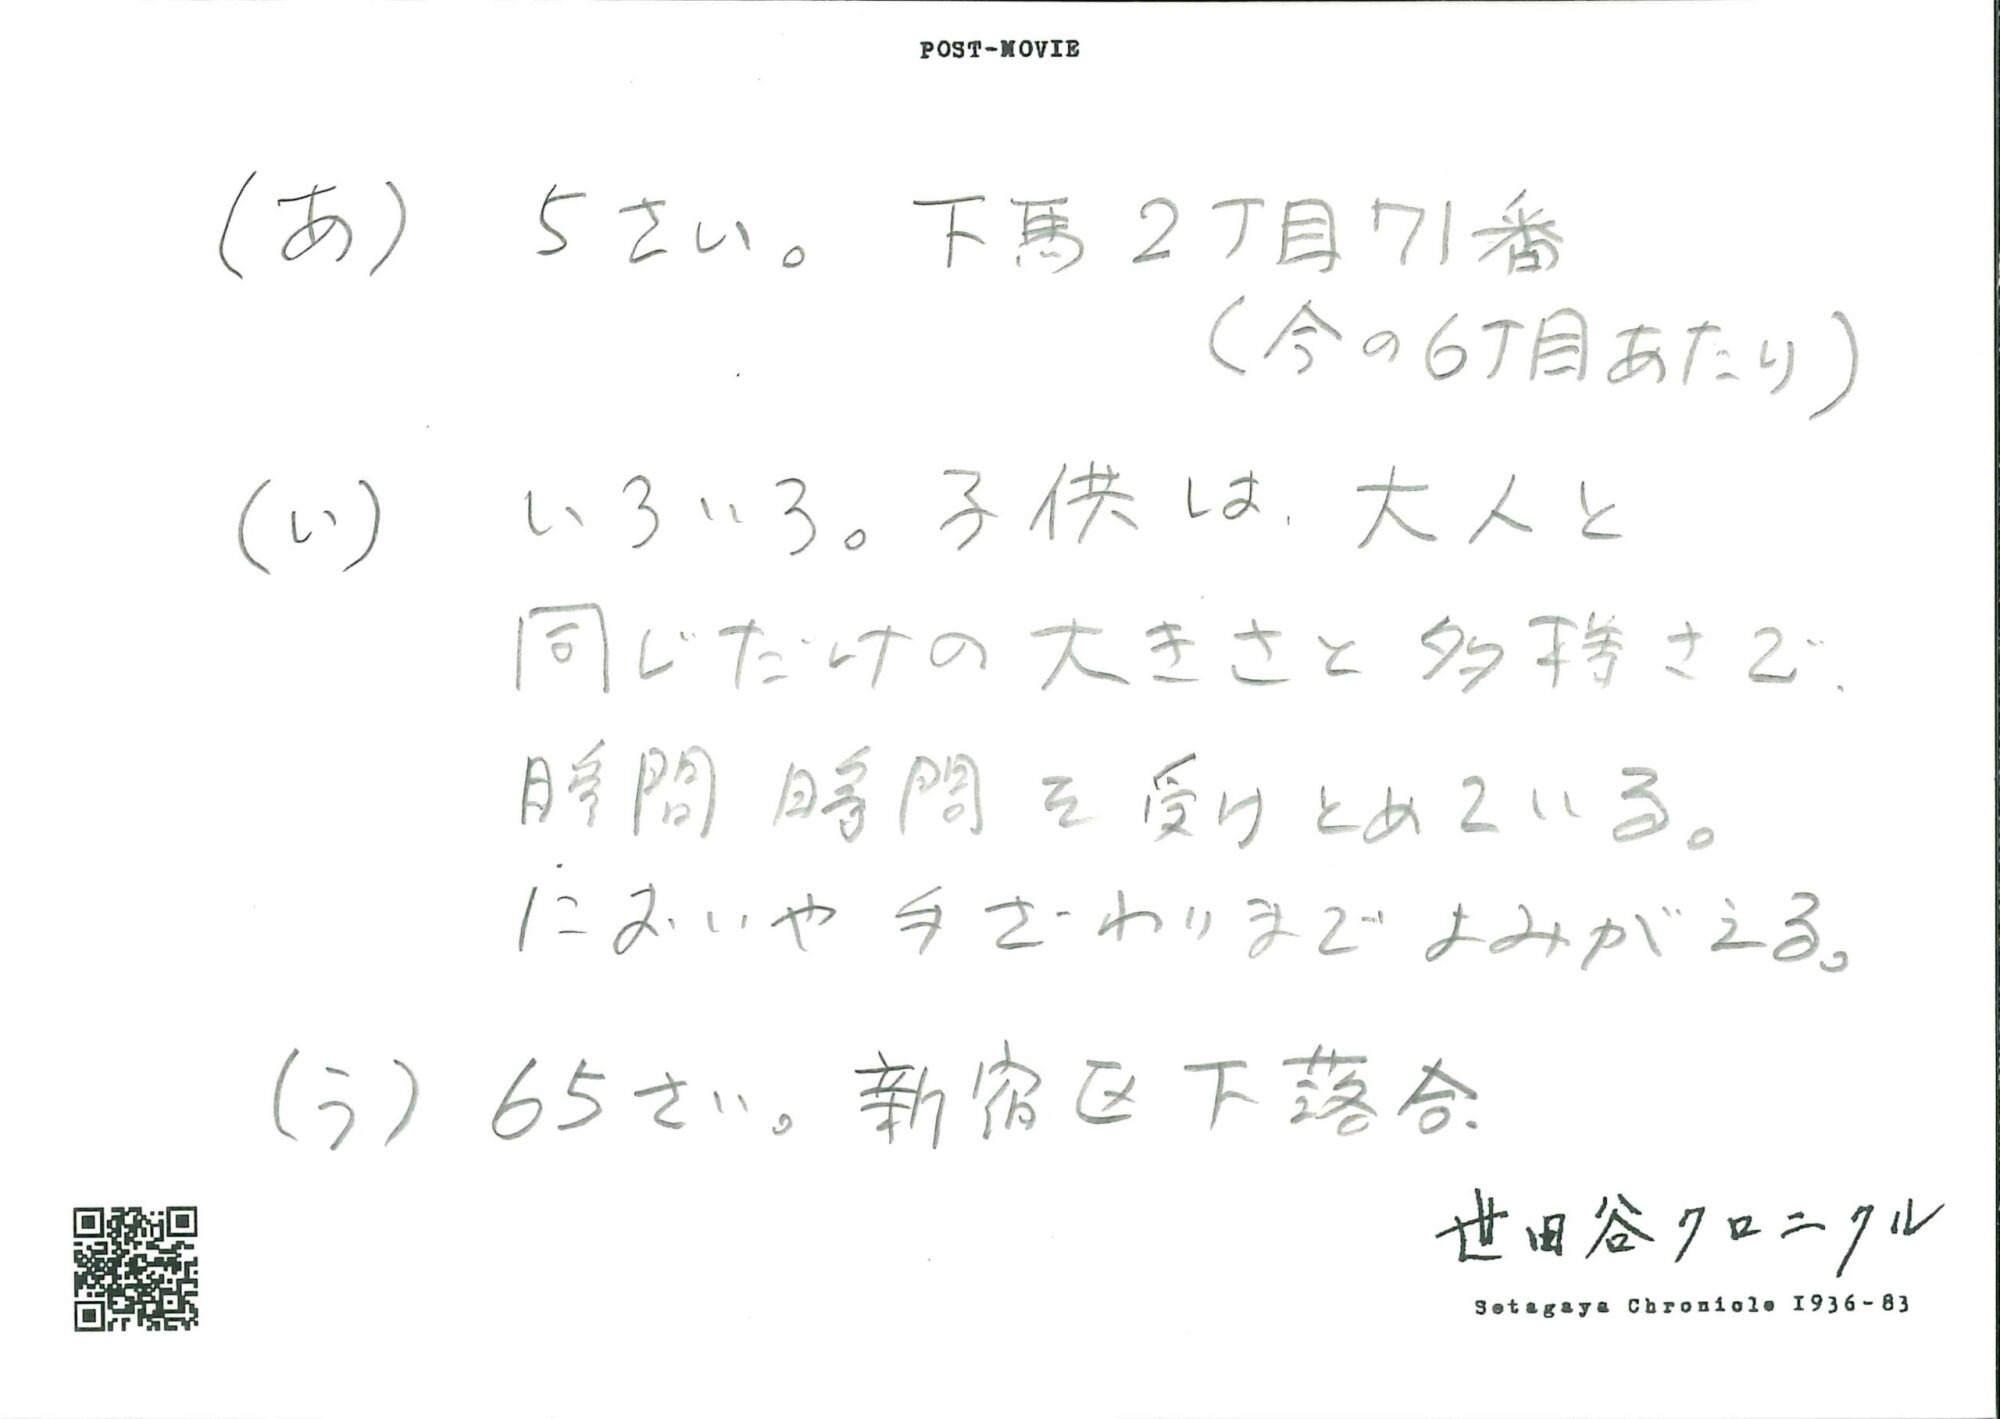 POST-MOVIE
(あ) 5さい。下馬2丁目71番
(今の6丁目あたり)
(い) いろいろ。子供は、大人と
同じだけの大きさと多様さで、
瞬間瞬間を受けとめている。
においや手ざわりまでよみがえる。
(う) 65さい。新宿区下落合.
世田谷クロニクル
Setagaya Chronicle 1936-83